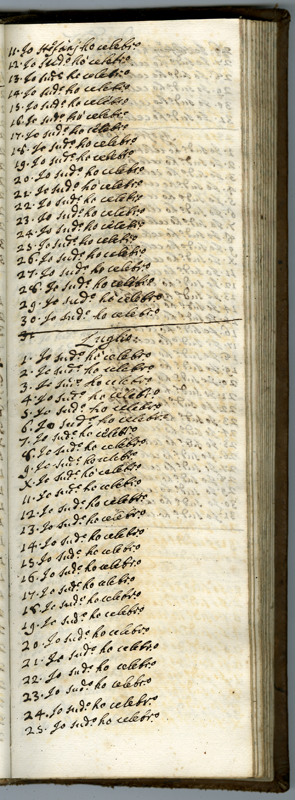 11. Io Stefanj ho celebro
12. Io Sud.º ho celebro
13. Io Sud.º ho celebro
14. Io Sud.º ho celebro
15. Io Sud.º ho celebro
16. Io Sud.º ho celebro
17. Io Sud.º ho celebro
18. Io Sud.º ho celebro
19. Io Sud.º ho celebro
20. Io Sud.º ho celebro
21. Io Sud.º ho celebro
22. Io Sud.º ho celebro
23. Io Sud.º ho celebro
24. Io Sud.º ho celebro
25. Io Sud.º ho celebro
26. Io Sud.º ho celebro
27. Io Sud.º ho celebro
28. Io Sud.º ho celebro
29. Io Sud.º ho celebro
30. Io Sud.º ho celebro
Luglio
1. Io Sud.º ho celebro
2. Io Sud.º ho celebro
3. Io Sud.º ho celebro
4. Io Sud.º ho celebro
5. Io Sud.º ho celebro
6. Io Sud.º ho celebro
7. Io Sud.º ho celebro
8. Io Sud.º ho celebro
9. Io Sud.º ho celebro
X. Io Sud.º ho celebro
11. Io Sud.º ho celebro
12. Io Sud.º ho celebro
13. Io Sud.º ho celebro
14. Io Sud.º ho celebro
15. Io Sud.º ho celebro
16. Io Sud.º ho celebro
17. Io Sud.º ho celebro
18. Io Sud.º ho celebro
19. Io Sud.º ho celebro
20. Io Sud.º ho celebro
21. Io Sud.º ho celebro
22. Io Sud.º ho celebro
23. Io Sud.º ho celebro
24. Io Sud.º ho celebro
25. Io Sud.º ho celebro